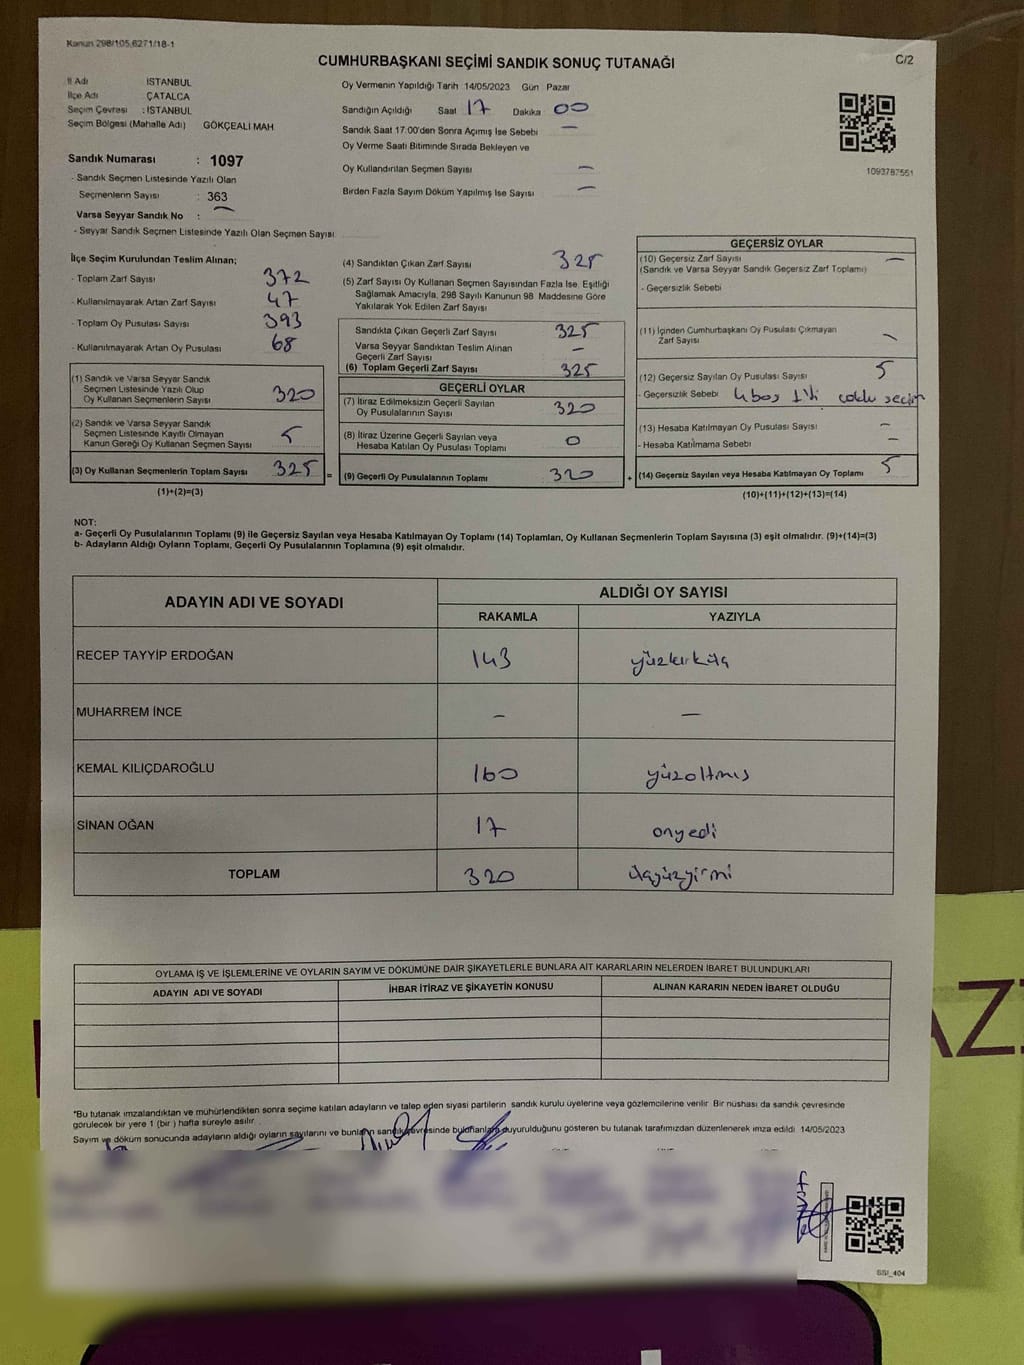 Kanun 298/105,6271/18-1
CUMHURBAŞKANI SEÇİMİ SANDIK SONUÇ TUTANAĞI
C/2
İl Adı İSTANBUL
İlçe Adı ÇATALCA
Seçim Çevresi : İSTANBUL
Seçim Bölgesi (Mahalle Adı) GÖKÇEALİ MAH
Sandık Numarası : 1097
- Sandık Seçmen Listesinde Yazılı Olan
Seçmenlerin Sayısı : 363
Varsa Seyyar Sandık No : —
- Seyyar Sandık Seçmen Listesinde Yazılı Olan Seçmen Sayısı
Oy Vermenin Yapıldığı Tarih 14/05/2023 Gün Pazar
Sandığın Açıldığı Saat 17 Dakika 00
Sandık Saat 17:00'den Sonra Açımış İse Sebebi —
Oy Verme Saati Bitiminde Sırada Bekleyen ve
Oy Kullandırılan Seçmen Sayısı —
Birden Fazla Sayım Döküm Yapılmış İse Sayısı —
1093787551
İlçe Seçim Kurulundan Teslim Alınan;
- Toplam Zarf Sayısı 372
- Kullanılmayarak Artan Zarf Sayısı 47
- Toplam Oy Pusulası Sayısı 393
- Kullanılmayarak Artan Oy Pusulası 68
(1) Sandık ve Varsa Seyyar Sandık
Seçmen Listesinde Yazılı Olup
Oy Kullanan Seçmenlerin Sayısı 320
(2) Sandık ve Varsa Seyyar Sandık
Seçmen Listesinde Kayıtlı Olmayan
Kanun Gereği Oy Kullanan Seçmen Sayısı 5
(3) Oy Kullanan Seçmenlerin Toplam Sayısı 325 =
(1)+(2)=(3)
(4) Sandıktan Çıkan Zarf Sayısı 325
(5) Zarf Sayısı Oy Kullanan Seçmen Sayısından Fazla İse, Eşitliği
Sağlamak Amacıyla, 298 Sayılı Kanunun 98 Maddesine Göre
Yakılarak Yok Edilen Zarf Sayısı
Sandıkta Çıkan Geçerli Zarf Sayısı 325
Varsa Seyyar Sandıktan Teslim Alınan
Geçerli Zarf Sayısı —
(6) Toplam Geçerli Zarf Sayısı 325
GEÇERLİ OYLAR
(7) İtiraz Edilmeksizin Geçerli Sayılan
Oy Pusulalarının Sayısı 320
(8) İtiraz Üzerine Geçerli Sayılan veya
Hesaba Katılan Oy Pusulası Toplamı 0
(9) Geçerli Oy Pusulalarının Toplamı 320 +
GEÇERSİZ OYLAR
(10) Geçersiz Zarf Sayısı —
(Sandık ve Varsa Seyyar Sandık Geçersiz Zarf Toplamı)
- Geçersizlik Sebebi
(11) İçinden Cumhurbaşkanı Oy Pusulası Çıkmayan
Zarf Sayısı —
(12) Geçersiz Sayılan Oy Pusulası Sayısı 5
- Geçersizlik Sebebi 4 boş çoklu seçim
(13) Hesaba Katılmayan Oy Pusulası Sayısı —
- Hesaba Katılmama Sebebi —
(14) Geçersiz Sayılan veya Hesaba Katılmayan Oy Toplamı 5
(10)+(11)+(12)+(13)=(14)
NOT:
a- Geçerli Oy Pusulalarının Toplamı (9) ile Geçersiz Sayılan veya Hesaba Katılmayan Oy Toplamı (14) Toplamları, Oy Kullanan Seçmenlerin Toplam Sayısına (3) eşit olmalıdır. (9)+(14)=(3)
b- Adayların Aldığı Oyların Toplamı, Geçerli Oy Pusulalarının Toplamına (9) eşit olmalıdır.
ADAYIN ADI VE SOYADI
ALDIĞI OY SAYISI
RAKAMLA YAZIYLA
RECEP TAYYİP ERDOĞAN 143 yüzkırküç
MUHARREM İNCE — —
KEMAL KILIÇDAROĞLU 160 yüzaltmış
SİNAN OĞAN 17 onyedi
TOPLAM 320 üçyüzyirmi
OYLAMA İŞ VE İŞLEMLERİNE VE OYLARIN SAYIM VE DÖKÜMÜNE DAİR ŞİKAYETLERLE BUNLARA AİT KARARLARIN NELERDEN İBARET BULUNDUKLARI
ADAYIN ADI VE SOYADI İHBAR İTİRAZ VE ŞİKAYETİN KONUSU ALINAN KARARIN NEDEN İBARET OLDUĞU
*Bu tutanak imzalandıktan ve mühürlendikten sonra seçime katılan adayların ve talep eden siyasi partilerin sandık kurulu üyelerine veya gözlemcilerine verilir. Bir nüshası da sandık çevresinde
görülecek bir yere 1 (bir) hafta süreyle asılır.
Sayım ve döküm sonucunda adayların aldığı oyların sayılarını ve bunların sandık çevresinde duyurulduğunu gösteren bu tutanak tarafımızdan düzenlenerek imza edildi 14/05/2023
SSI_404
AZ